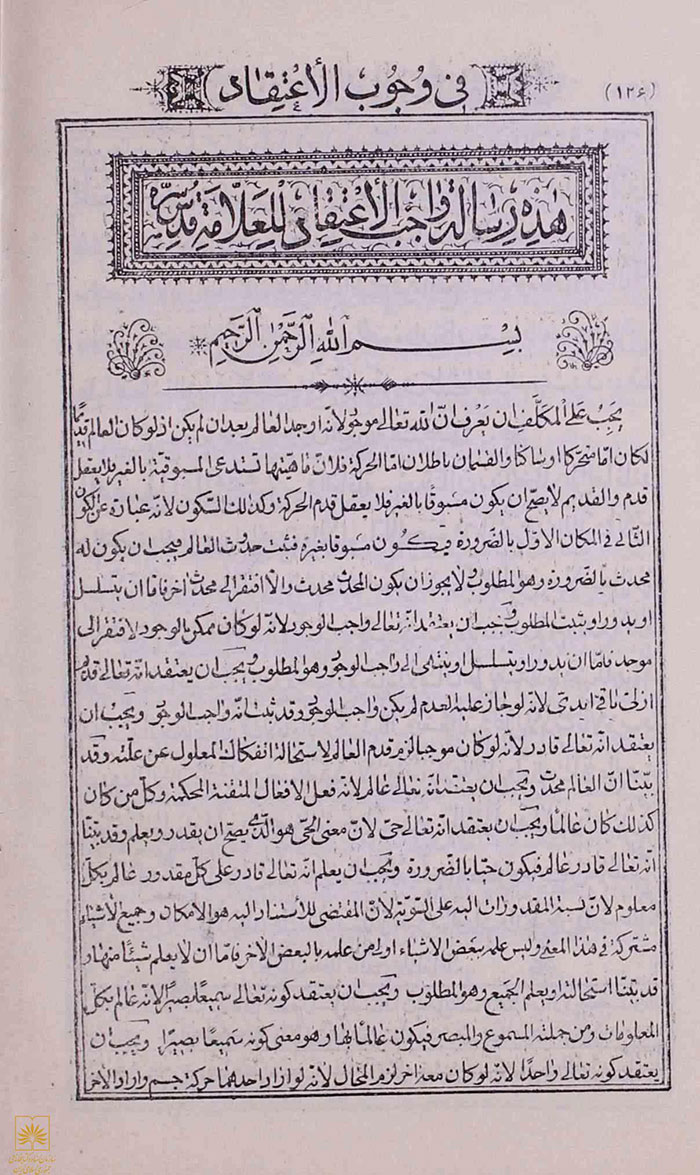 (١٢۶)
في وجوب الاعتقاد
هذه رسالة واجب الاعتقاد للعلامة قدس سره
بسم الله الرحمن الرحيم
يجب على المكلف ان يعرف ان الله تعالى موجود لانه اوجد العالم بعد ان لم يكن اذ لو كان العالم قديما
لكان اما متحركا او ساكنا والقسمان باطلان اما الحركة فلان ماهيتها تستدعى المسبوقية بالغير فلا يعقل
قدم والقديم لا يصح ان يكون مسبوقا بالغير فلا يعقل قدم الحركة وكذلك السكون لانه عبارة عن الكون
الثانى في المكان الاول بالضرورة فيكون مسبوقا بغيره فثبت حدوث العالم فيجب ان يكون له
محدث بالضرورة وهو المطلوب لا يجوز ان يكون المحدث محدث والا افتقر الى محدث اخر فاما ان يتسلسل
او يدور او يثبت المطلوب ويجب ان يعتقد انه تعالى واجب الوجود لانه لو كان ممكن بالوجود لافتقر الى
موجد فاما ان يدور او يتسلسل او ينتهى الى واجب الوجود وهو المطلوب ويجب ان يعتقد انه تعالى قديم
ازلى باقى ابدى لانه لو جاز عليه العدم لم يكن واجب الوجود وقد ثبت انه واجب الوجود ويجب ان
يعتقد انه تعالى قادر لانه لو كان موجبا لزم قدم العالم لاستحالة انفكاك المعلول عن علته وقد
بينا ان العالم محدث ويجب ان يعتقد انه تعالى عالم لانه فعل الافعال المتقنة المحكمة وكل من كان
كذلك كان عالما ويجب ان يعتقد انه تعالى حى لان معنى الحى هو الذى يصح ان يقدر ويعلم وقد بينا
انه تعالى قادر عالم فيكون حيا بالضرورة ويجب ان يعلم انه تعالى قادر على كل مقدور عالم بكل
معلوم لان نسبة المقدورات اليه على السوية لان المقتضى للاستناد اليه هو الامكان وجميع الاشياء
مشتركة في هذا المعنى وليس علمه ببعض الاشياء اولى من علمه بالبعض الاخر فاما ان لا يعلم شيئا منها و
قد بينا استحالته او يعلم الجميع وهو المطلوب ويجب ان يعتقد كونه تعالى سميعا بصيرا لانه عالم بكل
المعلومات ومن جملته المسموع والمبصر فيكون عالما بها وهو معنى كونه سميعا بصيرا ويجب ان
يعتقد كونه تعالى واحدا لانه لو كان معه اخر لزم المحال لانه لو اراد احدهما حركة جسم واراد الاخر